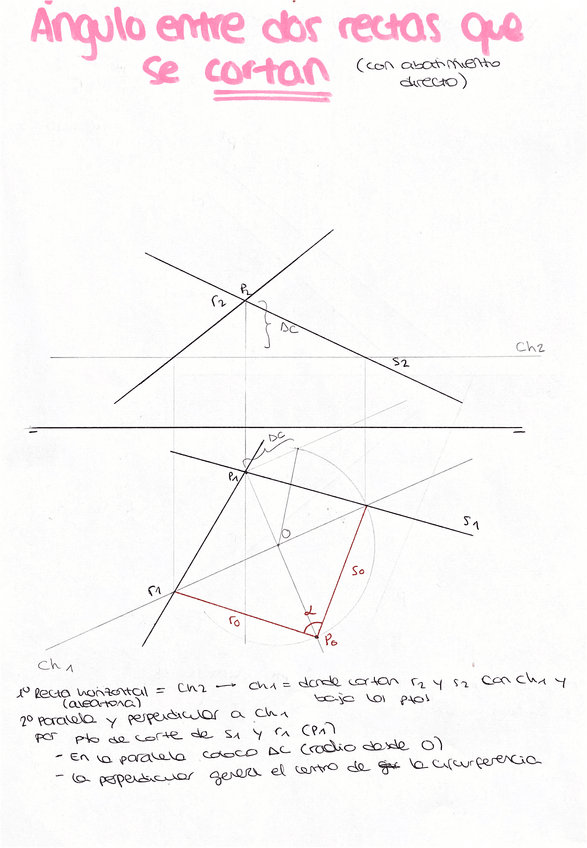 Ángulo entre dos rectas que
se cortan (con abatimiento
directo)
P2
r2
ΔC
Ch2
s2
ΔC
P1
s1
O
r1
s0
r0
α
P0
Ch1
1º Recta horizontal = Ch2 → ch1 = donde cortan r2 y s2 con ch1 y
(aleatoria) bajo los ptos
2º Paralela y perpendicular a ch1
por pto de corte de s1 y r1 (P1)
- En la paralela coloco ΔC (radio desde O)
- La perpendicular genera el centro de la circunferencia